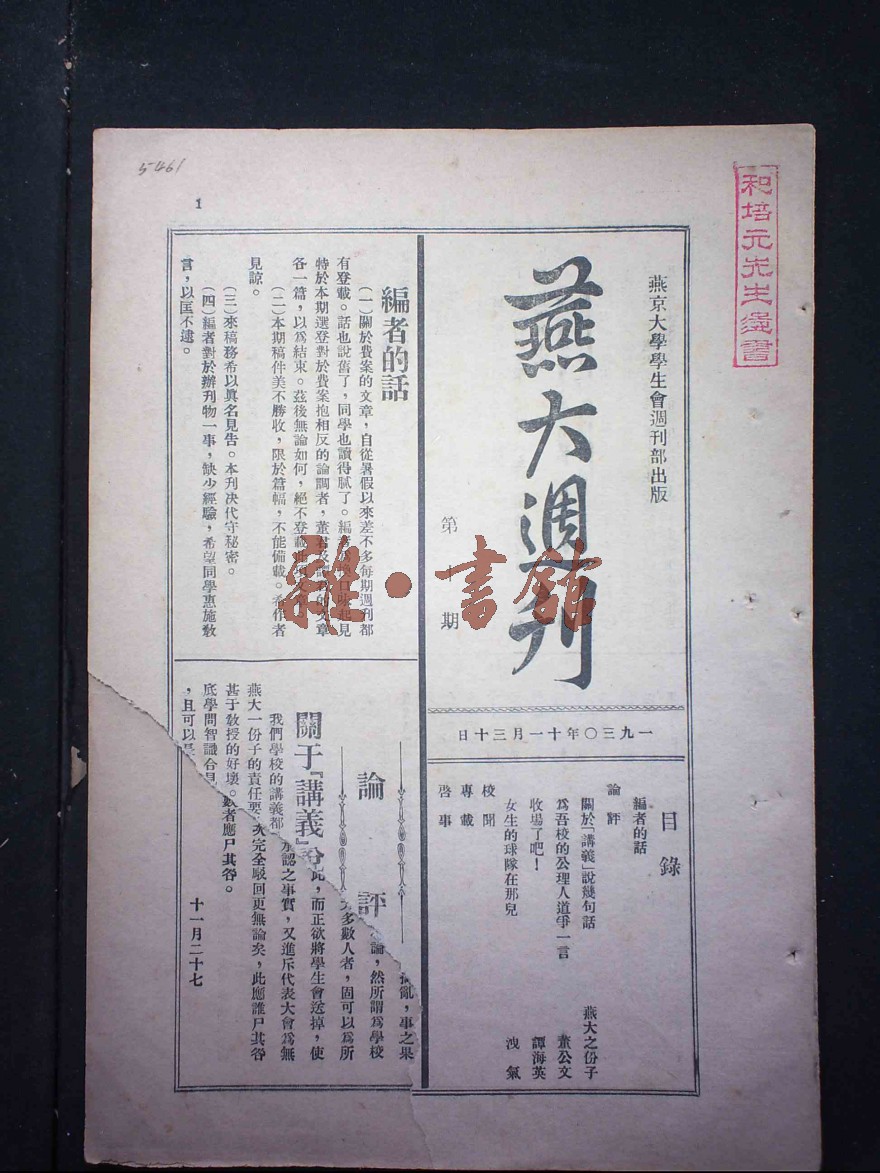 5461
1
和培元先生遺書
燕京大學學生會週刊部出版
燕大週刊
第一期
一九三〇年十一月三十日
目錄
編者的話
論評
關於「講義」說幾句話 燕大之份子
為吾校的公理人道爭一言 董公文
收場了吧! 譚海英
女生的球隊在那兒 洩氣
校聞
專載
啓事
編者的話
(一)關於費案的文章,自從暑假以來差不多每期週刊都
有登載。話也說舊了,同學也讀得膩了。編者
特於本期選登對於費案抱相反的論調者,董君及譚君的文章
各一篇,以爲結束。茲後無論如何,絕不登載
(二)本期稿件美不勝收,限於篇幅,不能備載。希作者
見諒。
(三)來稿務希以眞名見告。本刋决代守秘密。
(四)編者對於辦刋物一事,缺少經驗,希望同學惠施敎
言,以匡不逮。
論評
關于『講義』
我們學校的講義都
燕大一份子的責任要
甚于敎授的好壞。
底學問智識合見
,且可以
亂,事之果
論,然所謂爲學校
多數人者,固可以爲所
此,而正欲將學生會送掉,使
承認之事實,又進斥代表大會爲無
次完全駁回更無論矣,此應誰尸其咎
者應尸其咎。
十一月二十七
雜·書館